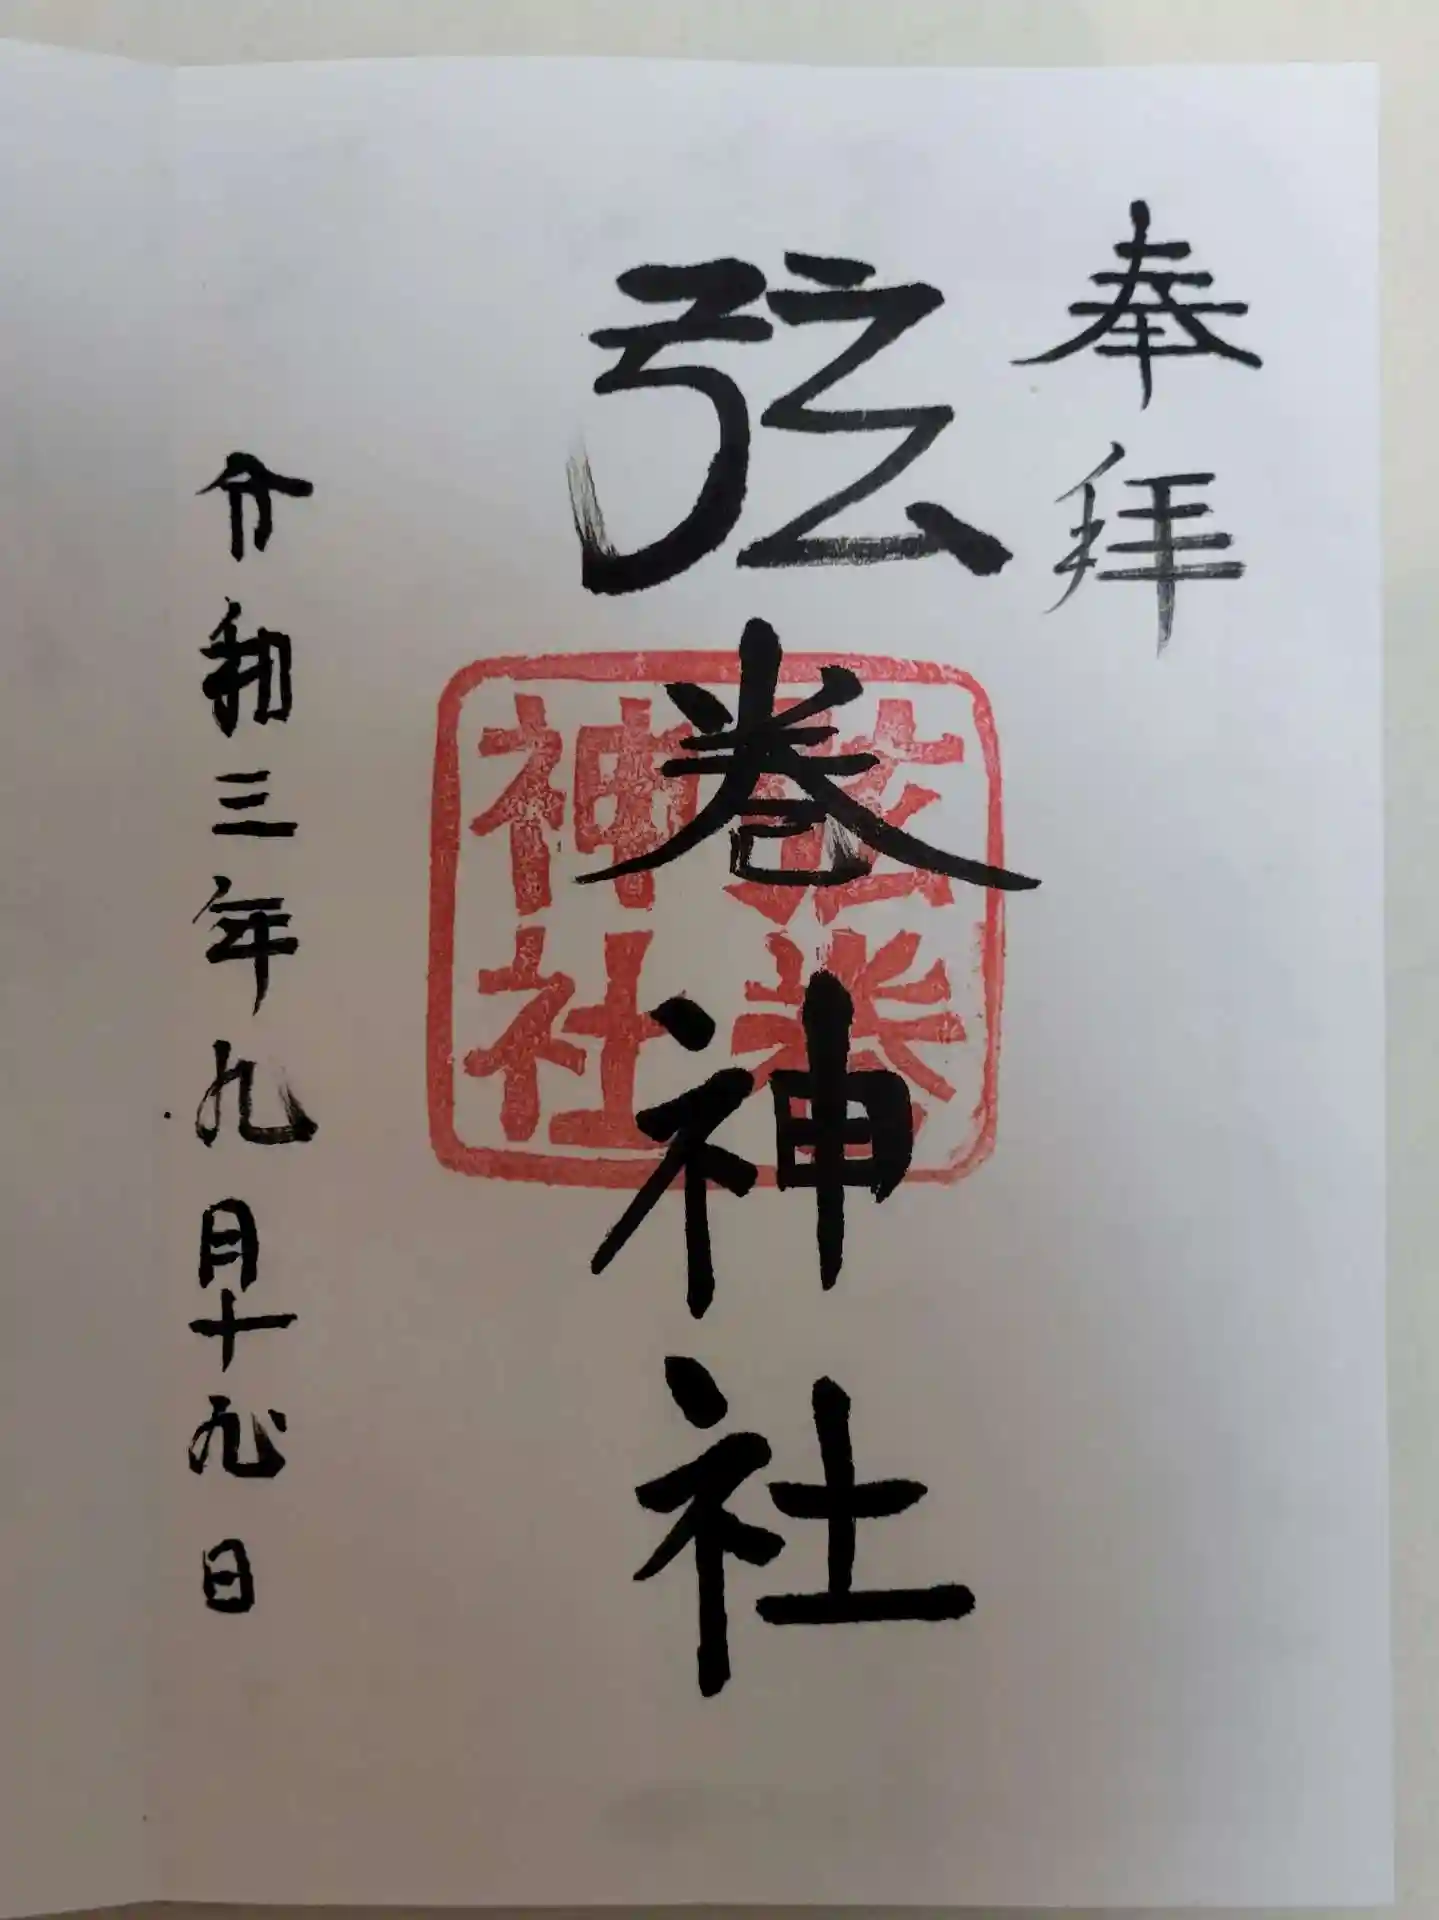 奉拝
弦巻神社
弦巻
神社
令和三年九月十九日